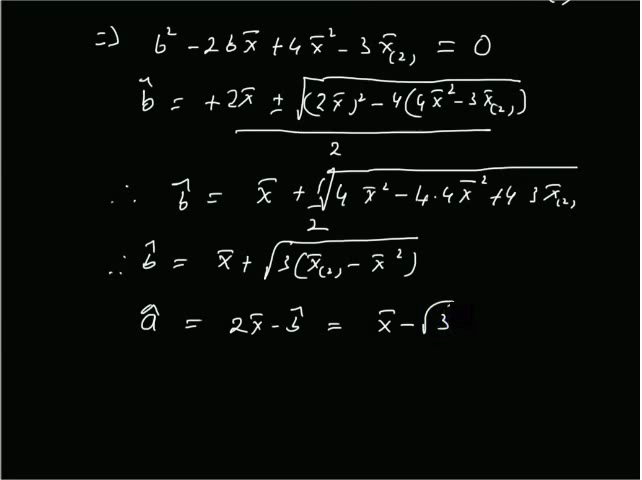 ⇒ b² - 2bx̄ + 4x̄² - 3x̄₍₂₎ = 0
b̂ = +2x̄ ± √((2x̄)² - 4(4x̄² - 3x̄₍₂₎)) / 2
∴ b̂ = x̄ + 1/2 √(4x̄² - 4·4x̄² + 4 3x̄₍₂₎)
∴ b̂ = x̄ + √(3(x̄₍₂₎ - x̄²))
â = 2x̄ - b̂ = x̄ - √3